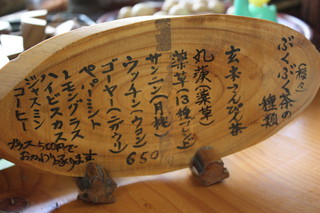 (種々)
ぶくぶく茶の種類
玄米さんぴん茶
丸葉(薬草)
薬草(13種)
サンニン(月桃)
ウッチン(ウコン)
ゴーヤー(ニガウリ)
ペパーミント
レモングラス
ハイビスカス
ジャスミン
コーヒー
650
プラス500円で
おかわり承ります